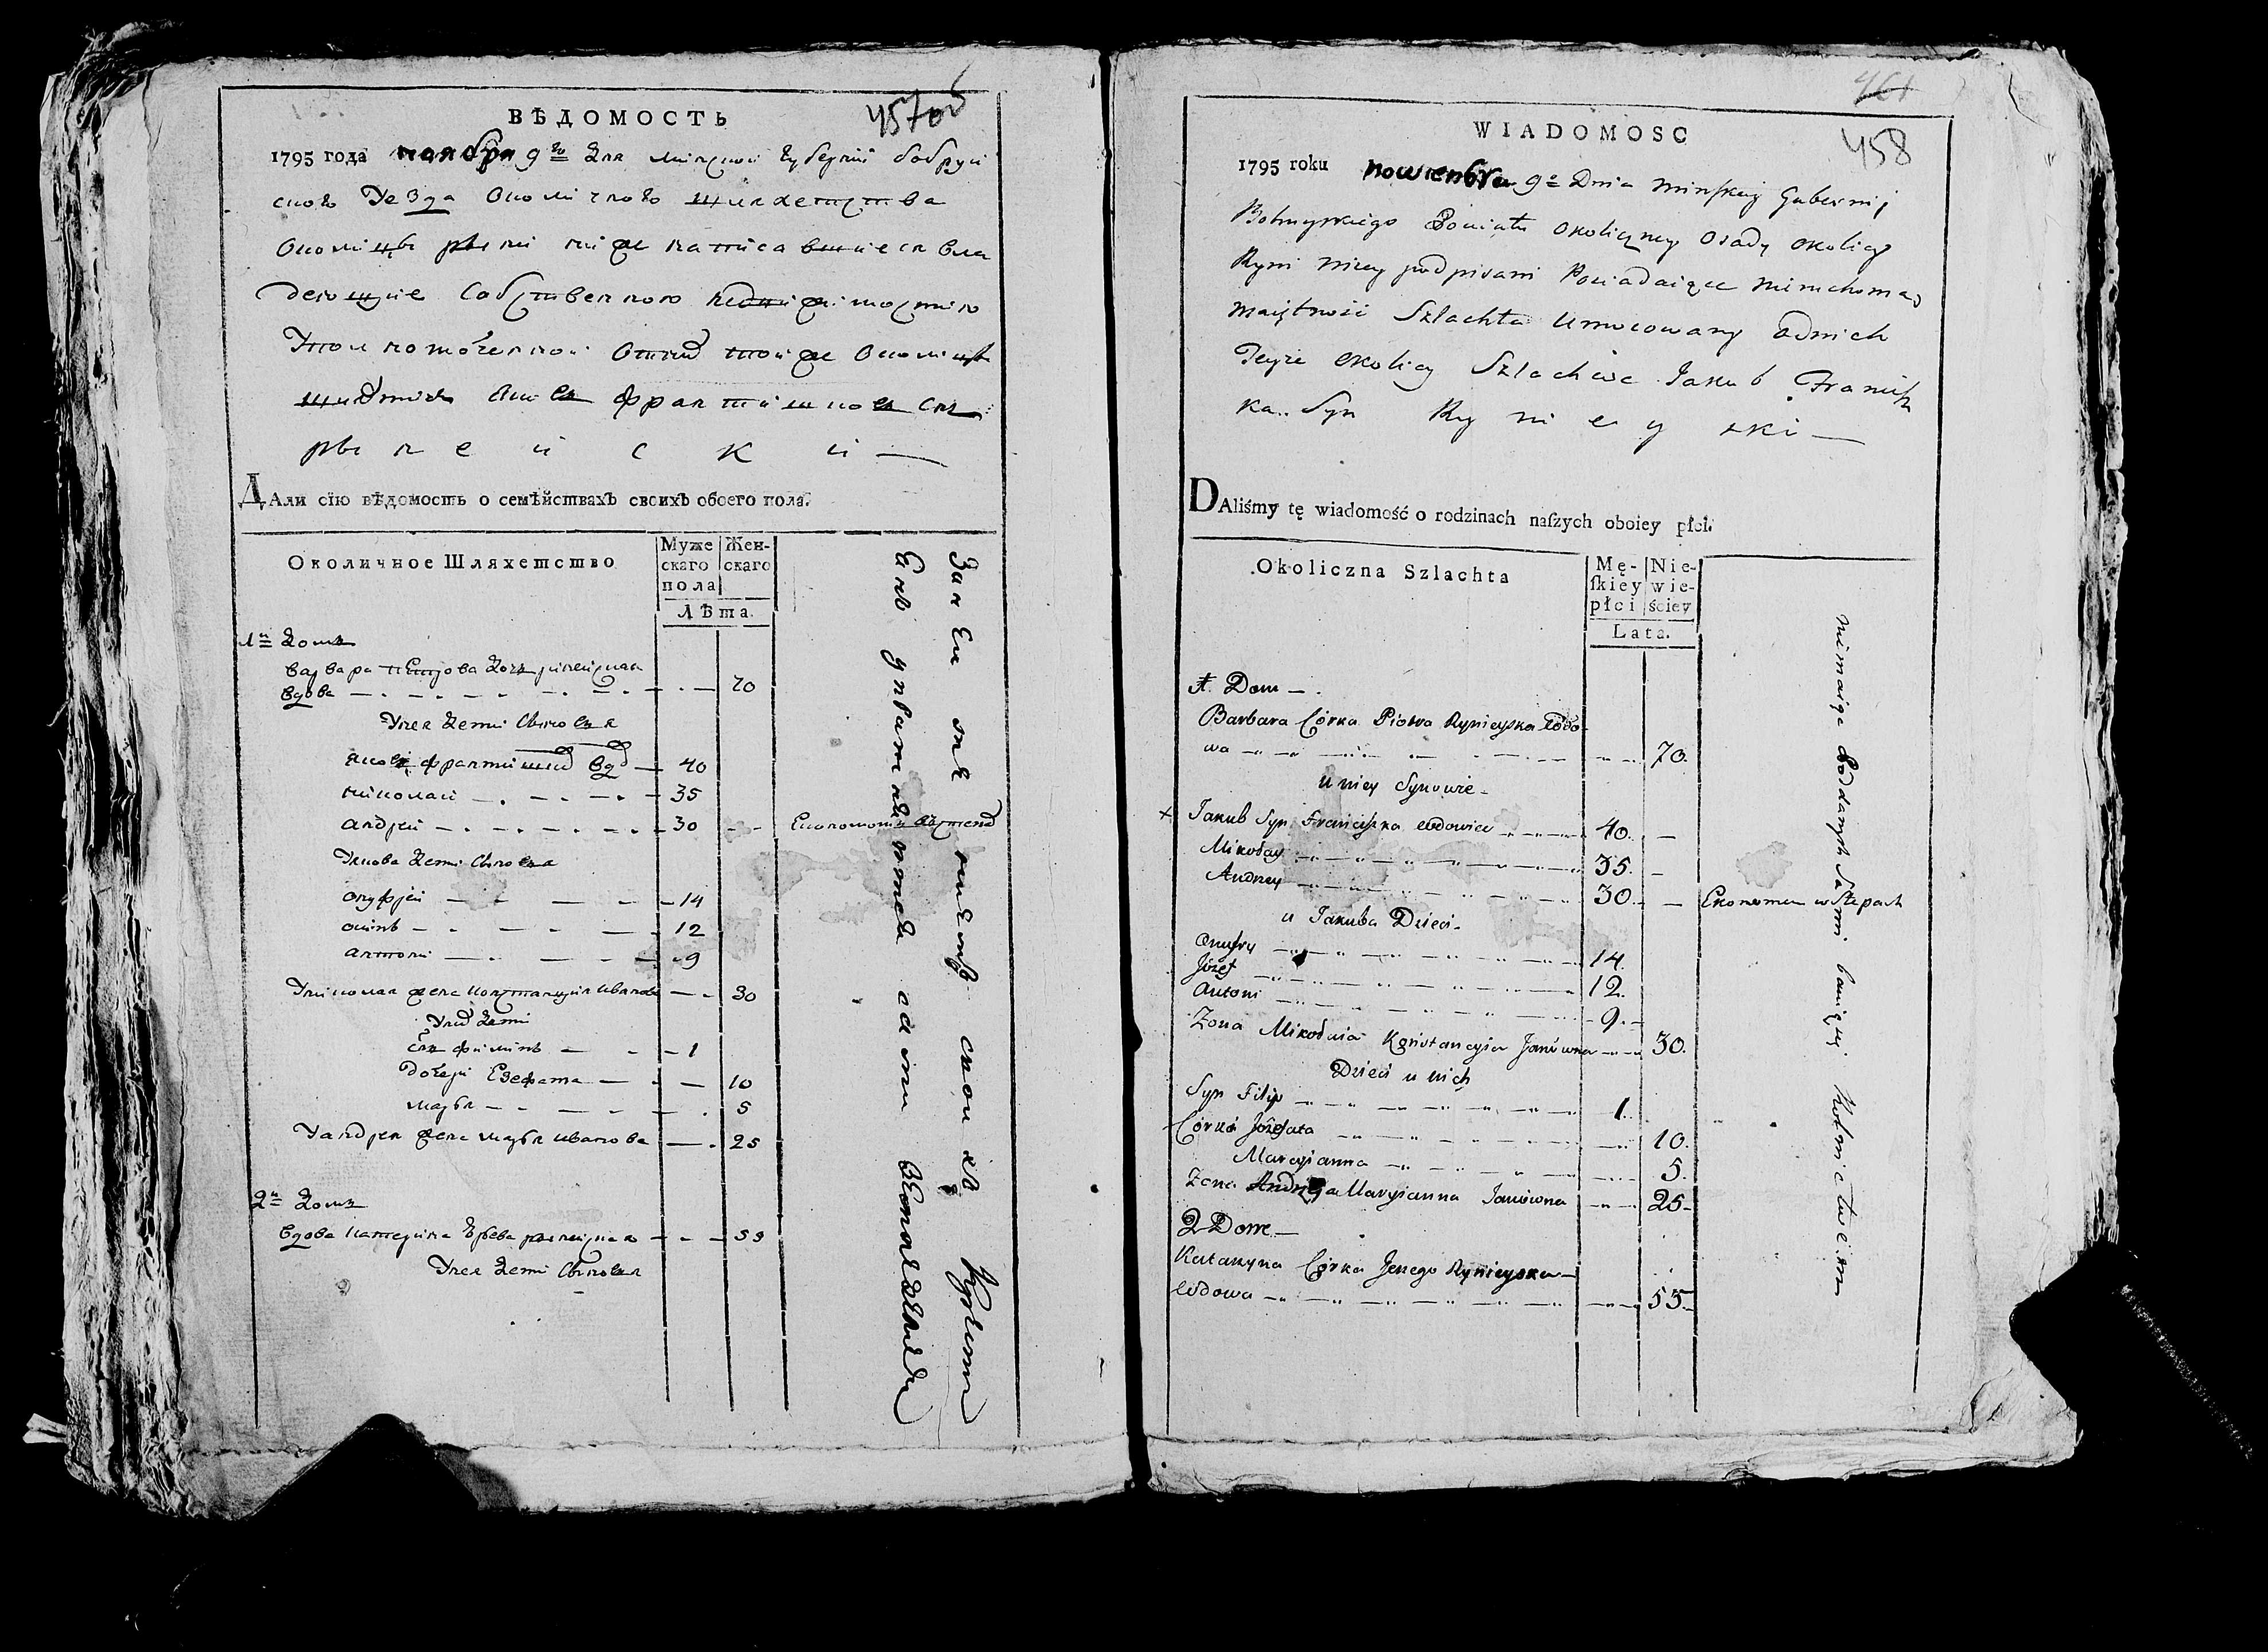 457об
ВѢДОМОСТЬ
1795 года ноября 9го Дня минской губернии бобруй
ского Уезда Околичного шляхетства
Околицы рыни ниже написавшиеся вла
деющие собственною недвижимостию
Уполномоченной от той же Околицы
шляхтич Яков францишков сын
рынейский
ДАли сїю вѣдомость о семѣйствахъ своихъ обоего пола.
Околичное Шляхетство
Муже
скаго
пола
Жен-
скаго
Лѣта.
1й Домъ
Варвара петрова дочь рынейская
вдова 70
У нея дети сыновья
яковъ францишков вд 40
николай 35
андрей 30 Економом
Якова дети сыновья
онуфрей 14
осипъ 12
антони 9
У николая жена констанция иванова 30
У них дети
сын филипъ 1
дочери Езефата 10
марья 5
У андрея жена марья иванова 25
2й Домъ
вдова катерина рынейская 55
У нея дети сыновья
461
458
WIADOMOSC
1795 roku nowembra 9o Dnia Minskiey Gubernij
Bobruyskiego Powiatu okoliczney osady okolicy
Ryni niżey podpisani Posiadaiące nieruchomą
maiętność Szlachta Umocowany od nich
Teyże okolicy Szlachcic Jakub Francisz
ka Syn Rynieyski
DAliśmy tę wiadomość o rodzinach naſzych oboiey płci.
Okoliczna Szlachta
Mę-
ſkiey
płci
Nie-
wie-
ściey
Lata.
1. Dom
Barbara Córka Piotra Rynieyska Wdo-
wa 70.
u niey Synowie
Jakub Syn Franciszka wdowiec 40.
Mikołay 35.
Andrzey 30. Ekonomem w Stepach
u Jakuba Dzieci
Onufry 14.
Józef 12.
Antoni 9.
Zona Mikołaia Konstancyia Janówna 30.
Dzieci u nich
Syn Filip 1.
Córka Józefata 10.
Maryianna 5.
Zona Andrzeja Maryianna Janówna 25.
2 Dom
Katarzyna Córka Jerzego Rynieyska
Wdowa 55.
nie maiąc Poddanych Sami bawią się Rolnictwem